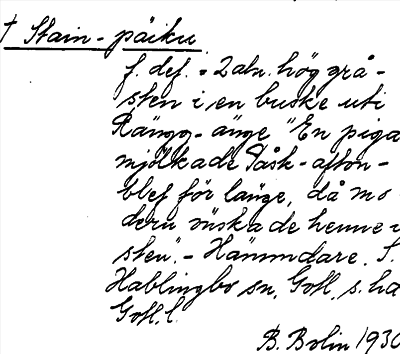 † Stain-päiku
f. def. = 2 aln. hög grå-
sten i en buske uti
Rängg-änge "En piga
mjölkade Påsk-afton-
blef för länge, då mo-
dern önskade henne i
sten". - Hämndare. S.
Hablingbo sn, Gotl, s. ha
Gotl. l.
B. Bolin 1930